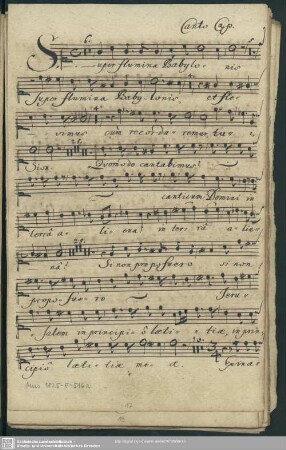 Canto Rip.
Super flumina Babylo- nis
super flumina Babylonis, et fle-
vimus cum recordaremur tu- i,
Sion. Quomodo cantabimus?
canticum Domini in
terra a- li- ena? in terra a- lie-
na? Si non proposuero si non
propo- suero Jeru-
salem in principio laeti- tiae, in prin-
cipio laetitiae me- ae.
Mus. 1825-E-516a